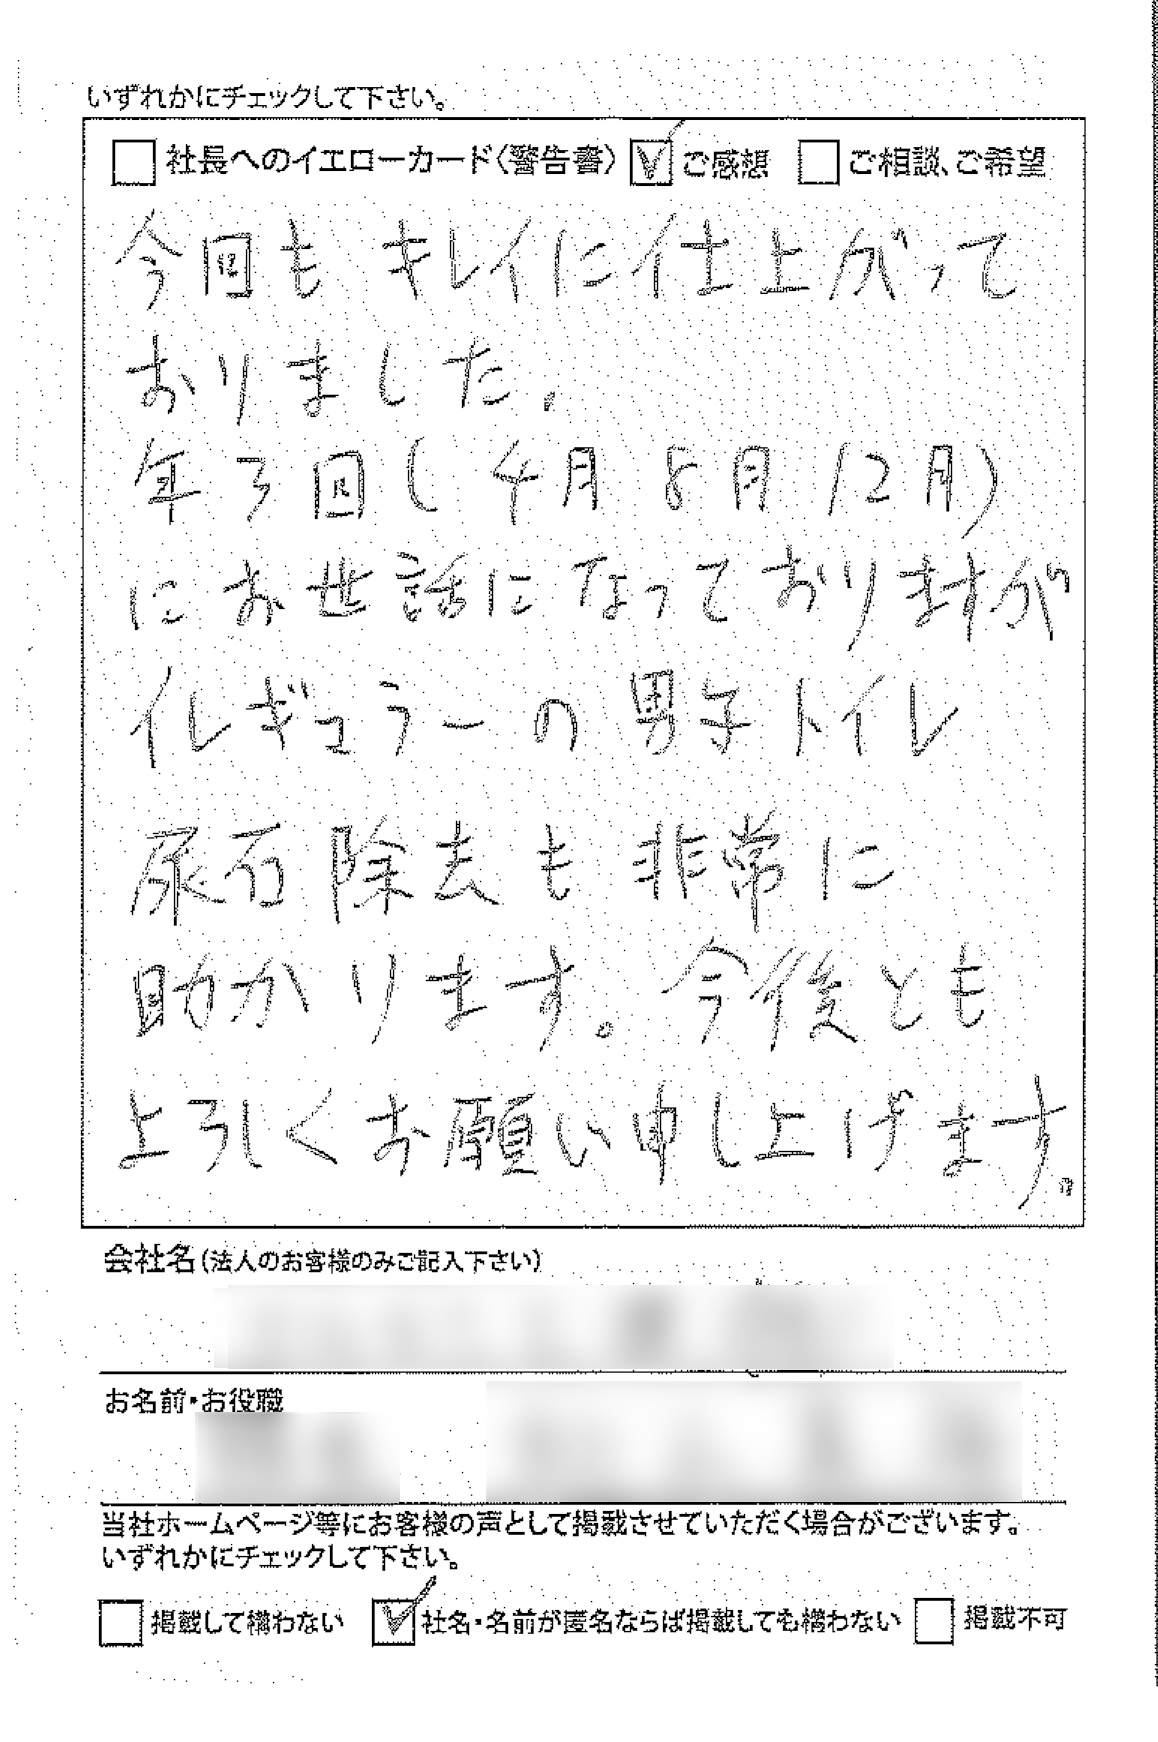 いずれかにチェックして下さい。
□社長へのイエローカード〈警告書〉 ☑ご感想 □ご相談、ご希望
今回も キレイに仕上がって
おりました.
年3回( 4月 8月 12月)
にお世話になっておりますが
イレギュラーの男子トイレ
尿石除去も非常に
助かります。今後とも
よろしくお願い申し上げます。
会社名(法人のお客様のみご記入下さい)
お名前・お役職
当社ホームページ等にお客様の声として掲載させていただく場合がございます。
いずれかにチェックして下さい。
□掲載して構わない ☑社名・名前が匿名ならば掲載しても構わない □掲載不可